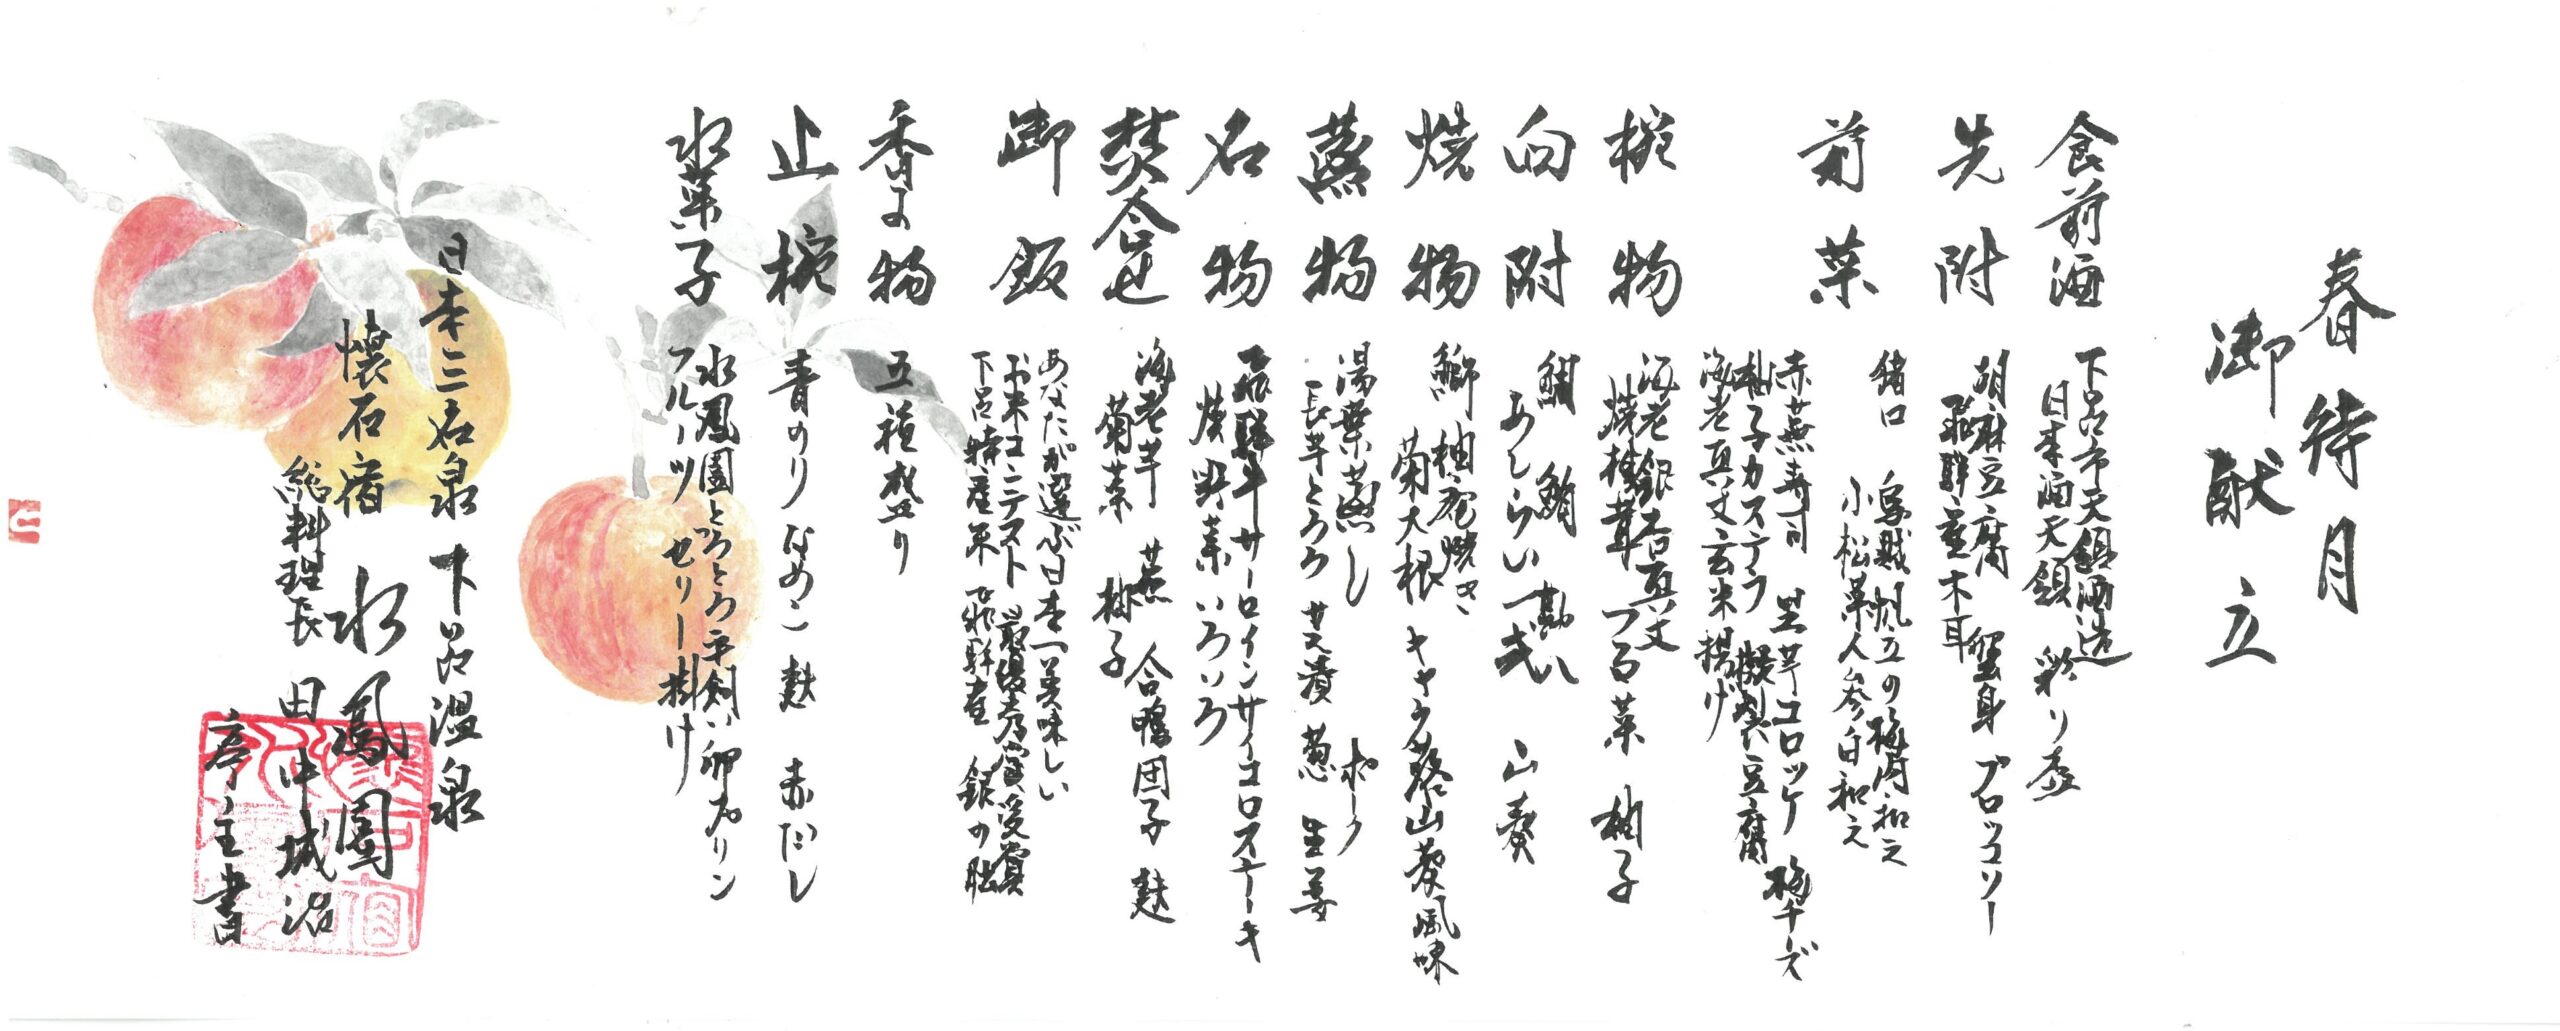 春待月
御献立
食前酒
下呂市天領酒造
日本酒天領 彩り盃
先附
胡麻豆腐 蟹身 ブロッコリー
飛騨産木耳
前菜
猪口 烏賊帆立の梅肉和え
小松菜人参白和え
赤蕪寿司 里芋コロッケ 梅チーズ
柚子カステラ 擬製豆腐
海老真丈玄米揚げ
椀物
海老銀杏真丈
焼椎茸 つる菜 柚子
向附
鯛 鮪 勘八
あしらい一式 山葵
焼物
鰤柚庵焼き
菊大根 キャラ蕗山葵風味
蒸物
湯葉蒸し ポーク
長芋とろろ 甘酢漬 葱 生姜
名物
飛騨牛サーロインサイコロステーキ
焼野菜いろいろ
焚合せ
海老芋 蕪 合鴨団子 麩
菊菜 柚子
御飯
あなたが選ぶ日本一美味しい
お米コンテスト 最優秀賞受賞
下呂特産米 飛騨産 銀の朏
香の物
五種盛り
止椀
青のり なめこ 麩 赤だし
水菓子
水鳳園とろとろ平飼い卵プリン
フルーツ ゼリー掛け
日本三名泉 下呂温泉
懐石宿 水鳳園
総料理長 田中城治
亭主書